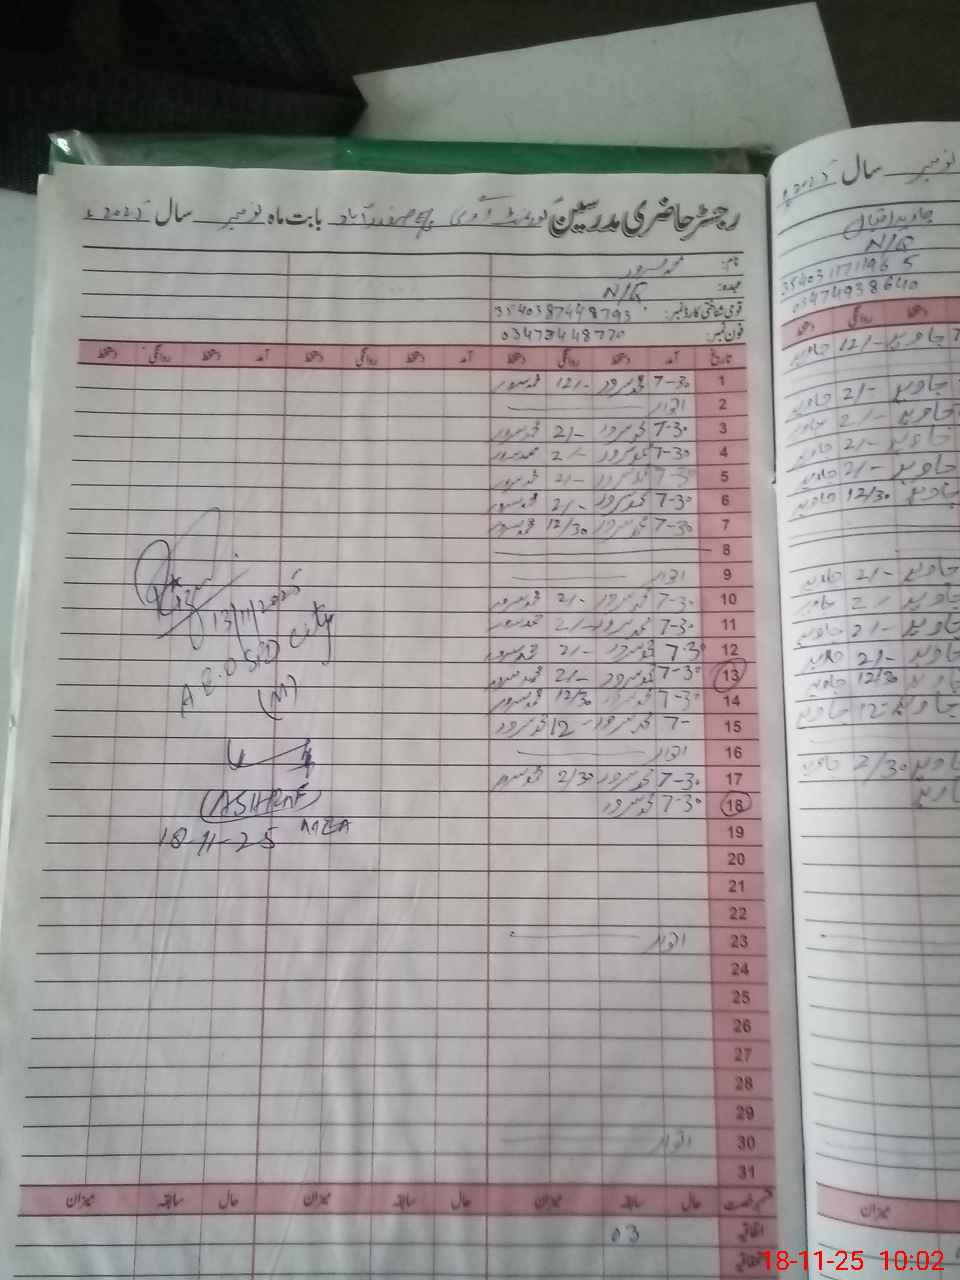 رجسٹر حاضری مدرسین گورنمنٹ بابت ماہ نومبر سال 2025ء
نام: محمد سرور
عہدہ: N/Q
قومی شناختی کارڈ نمبر: 3540387448793
فون نمبر: 03478448770
تاریخ آمد دستخط روانگی دستخط آمد دستخط روانگی دستخط
1 7-30 محمد سرور 12/- محمد سرور
2 اتوار
3 7-30 محمد سرور 2/- محمد سرور
4 7-30 محمد سرور 2/- محمد سرور
5 7-30 محمد سرور 2/- محمد سرور
6 7-30 محمد سرور 2/- محمد سرور
7 7-30 محمد سرور 12/30 محمد سرور
8
9 اتوار
10 7-30 محمد سرور 2/- محمد سرور
11 7-30 محمد سرور 2/- محمد سرور
12 7-30 محمد سرور 2/- محمد سرور
13 7-30 محمد سرور 2/- محمد سرور
14 7-30 محمد سرور 12/30 محمد سرور
15 7- محمد سرور 12- محمد سرور
16 اتوار
17 7-30 محمد سرور 2/30 محمد سرور
18 7-30 محمد سرور
19
20
21
22
23 اتوار
24
25
26
27
28
29
30 اتوار
31
حال سابقہ میزان حال سابقہ میزان حال سابقہ میزان
اتفاقیہ 03
13/11/2025
A.E.O SKD City
(M)
(ASHRAF)
MEA
18-11-25
نومبر سال 2025ء
جاوید اقبال
N/Q
3540311711965
03474938640
دستخط روانگی دستخط
جاوید 12/- جاوید
جاوید 2/- جاوید
جاوید 2/- جاوید
جاوید 2/- جاوید
جاوید 2/- جاوید
جاوید 12/30 جاوید
جاوید 2/- جاوید
جاوید 2/- جاوید
جاوید 2/- جاوید
جاوید 2/- جاوید
جاوید 12/30 جاوید
جاوید 12- جاوید
جاوید 2/30 جاوید
جاوید
میزان
18-11-25 10:02